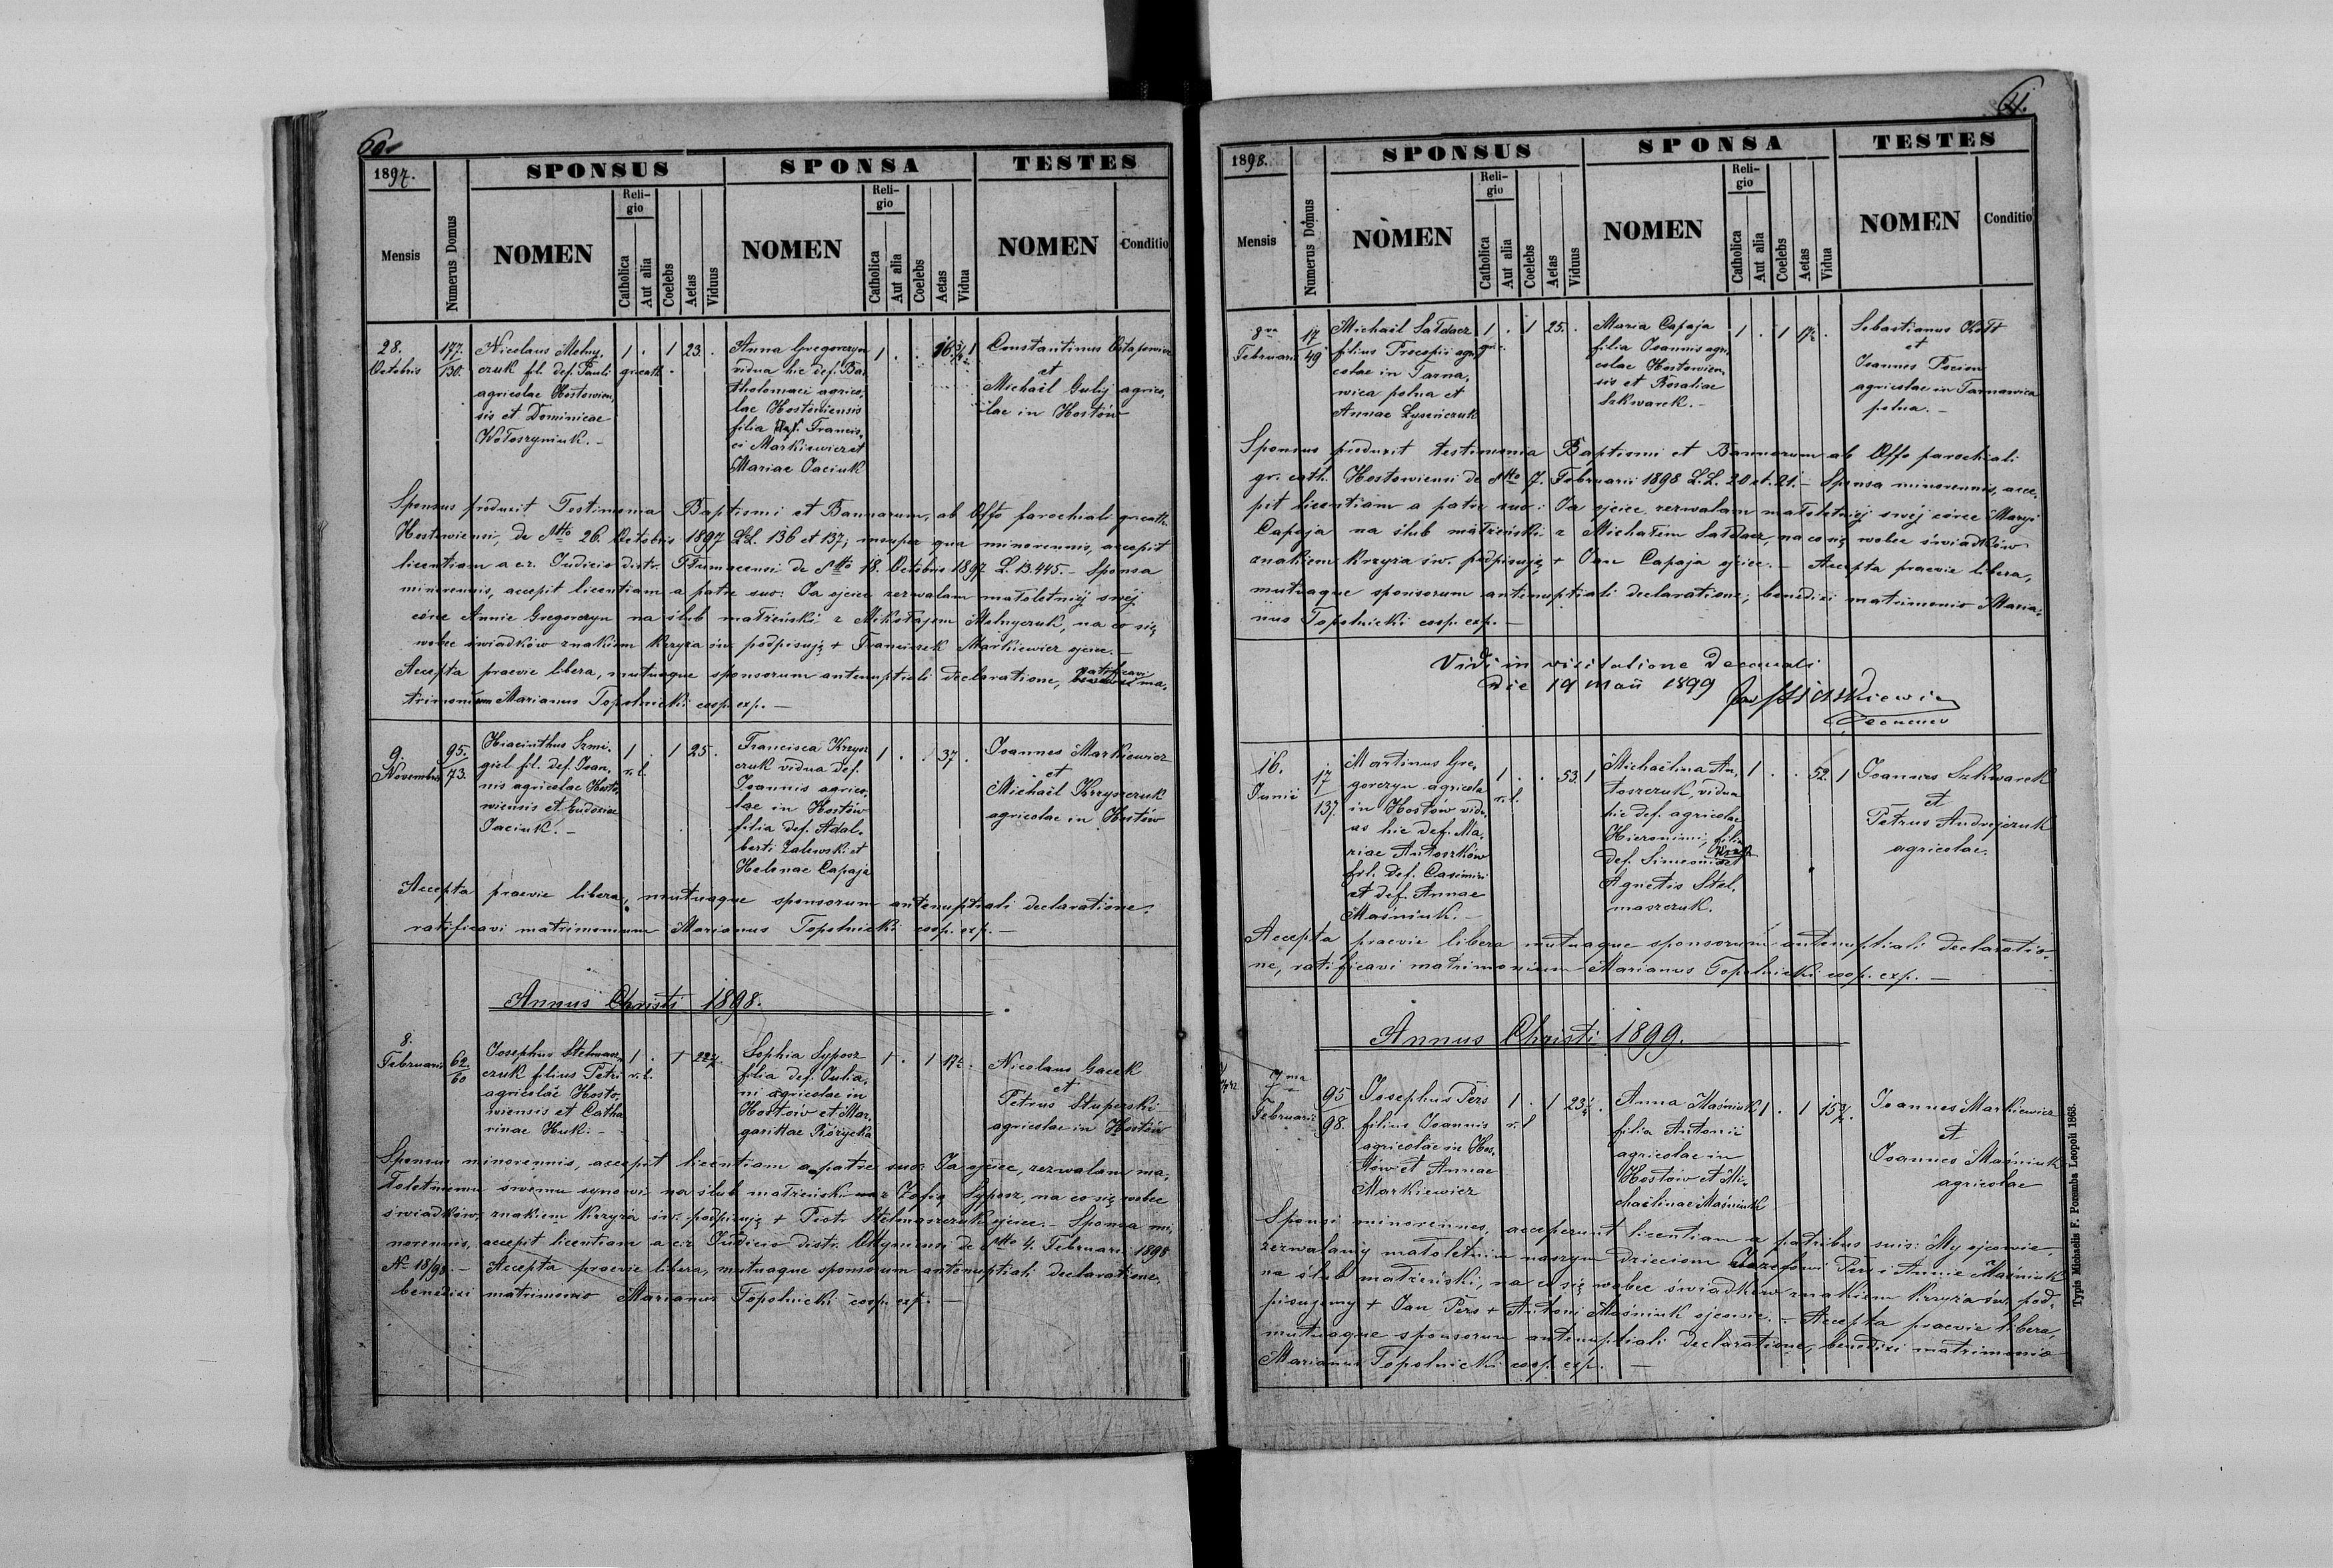 60
1897.
SPONSUS
SPONSA
TESTES
Mensis
Numerus Domus
NOMEN
Religio
Catholica
Aut alia
Coelebs
Aetas
Viduus
NOMEN
Religio
Catholica
Aut alia
Coelebs
Aetas
Vidua
NOMEN
Conditio
28.
Octobris
177.
130.
Nicolaus Melny,
czuk fil. def. Pauli
agricolae Hostowien,
sis et Dominicae
Wołoszyniuk. –
1 . 1 23 .
gr.cath.
Anna Gregorczyn
vidua hic def. Bar
tholomaei agrico,
lae Hostowiensis
filia Francis,
ci Markiewicz et
Mariae Jaciuk
1 . . 16 1
Constantinus Ostapowicz
et
Michaël Gulij agrico,
lae in Hostów
Sponsus produxit Testimonia Baptismi et Bannorum, ab Offo parochiali gr.cath.
Hostowiensi, de dtto 26. Octobris 1897 LL. 136 et 137; insuper qua minorennis, accepit
licentiam a c.r. Judicio distr. Tłumacensi de dtto 18. Octobris 1897 L. 13.445. – Sponsa
minorennis, accepit licentiam a patre suo: Ja ojciec zezwalam małoletniéj swéj
córce Annie Gregorczyn na ślub małżeński z Mikołajem Melnyczuk, na co się
wobec świadków znakiem krzyża św. podpisuję + Franciszek Markiewicz ojciec. –
Accepta praevie libera, mutuaque sponsorum antenuptiali declaratione, ratificavi ma,
trimonium Marianus Topolnicki coop. exp. –
9.
Novembris
95.
73.
Hiacinthus Szmi,
giel fil. def. Joan,
nis agricolae Hosto,
wiensis et Eudoxiae
Jaciuk. –
1 . 1 25 .
r.l.
Francisca Krzysz
czuk vidua def.
Joannis agrico,
lae in Hostów
filia def. Adal,
berti Zalewski et
Helenae Capaja
1 . . 37 .
Joannes Markiewicz
et
Michaël Krzyszczuk
agricolae in Hostów
Accepta praevie libera, mutuaque sponsorum antenuptiali declaratione,
ratificavi matrimonium Marianus Topolnicki coop. exp. –
Annus Christi 1898.
8.
Februarii
62
60
Josephus Stelmasz,
czuk filius Petri
agricolae Hosto,
wiensis et Catha
rinae Huk. –
1 . 1
r.l.
Sophia Syposz
filia def. Julia,
ni agricolae in
Hostów et Mar,
garittae Różycka
1 . 1 17½ .
Nicolaus Gacek
et
Petrus Stuperski
agricolae in Hostów
Sponsus minorennis, accepit licentiam a patre suo: Ja ojciec, zezwalam ma,
łoletniemu swemu synowi na ślub małżeński z Zofią Syposz, na co się wobec
świadków, znakiem krzyża św. podpisuję + Piotr Stelmaszczuk ojciec. – Sponsa mi,
norennis, accepit licentiam a c.r. Judicio distr. Ottyniensi de dtto 4. Februarii 1898
No 18/98. – Accepta praevie libera, mutuaque sponsorum antenuptiali declaratione,
benedixi matrimonio Marianus Topolnicki coop. exp. –
61.
1898.
SPONSUS
SPONSA
TESTES
Mensis
Numerus Domus
NOMEN
Religio
Catholica
Aut alia
Coelebs
Aetas
Viduus
NOMEN
Religio
Catholica
Aut alia
Coelebs
Aetas
Vidua
NOMEN
Conditio
Februarii
17
49
Michaël Sałdacz
filius Procopii agri,
colae in Tarna,
wica polna et
Annae Łyseńczuk
1 . 1 25 .
gr.c.
Maria Capaja
filia Joannis agri,
colae Hostowien,
sis et Rosaliae
Szkwarek. –
1 . 1 17½ .
Sebastianus Kott
et
Joannes
agricolae in Tarnawica
polna. –
Sponsus produxit testimonia Baptismi et Bannorum ab Offo parochiali
gr. cath. Hostowiensi de dtto 7. Februarii 1898 L.L. 20 et 21. – Sponsa minorennis, acce,
pit licentiam a patre suo: Ja ojciec zezwalam małoletniéj swéj córce Maryi
Capaja na ślub małżeński z Michałem Sałdacz, na co się wobec świadków
znakiem krzyża św. podpisuję + Jan Capaja ojciec. – Accepta praevie libera,
mutuaque sponsorum antenuptiali declaratione, benedixi matrimonio Maria,
nus Topolnicki coop. exp. –
Vidi in visitatione Decanali
die 19 Maii 1899
16.
Junii
17
137.
Martinus Gre,
gorczyn agricola
in Hostów vidu,
us hic def. Ma,
riae Antoszków
fil. def. Casimiri
et def. Annae
Maśniuk. –
1 . . 53. 1
r.l.
Michaëlina An,
toszczuk, vidua
hic def. agricolae
Hieronimi, filia
def. Simeonis et
Agnetis Stel,
maszczuk.
1 . . 52. 1
Joannes Szkwarek
et
Petrus Andrejczuk
agricolae.
Accepta praevie libera mutuaque sponsorum antenuptiali declaratio,
ne, ratificavi matrimonium Marianus Topolnicki coop. exp. –
Annus Christi 1899.
7ma
Februarii
95
98.
Josephus Pers
filius Joannis
agricolae in Hos,
tów et Annae
Markiewicz
1 . 1 23¼ .
r.l
Anna Maśniuk
filia Antonii
agricolae in
Hostów et Mi,
chaëlinae Maśniuk
1 . 1 15 .
Joannes Markiewicz
et
Joannes Maśniuk
agricolae
Sponsi minorennes, acceperunt licentiam a patribus suis: My ojcowie,
zezwalamy małoletnim naszym dzieciom Józefowi Pers i Annie Maśniuk
na ślub małżeński, na co się wobec świadków znakiem krzyża św. pod,
pisujemy + Jan Pers + Antoni Maśniuk ojcowie. – Accepta praevie libera,
mutuaque sponsorum antenuptiali declaratione, benedixi matrimonio
Marianus Topolnicki coop. exp. –
Typis Michaelis F. Poremba Leopoli 1863.